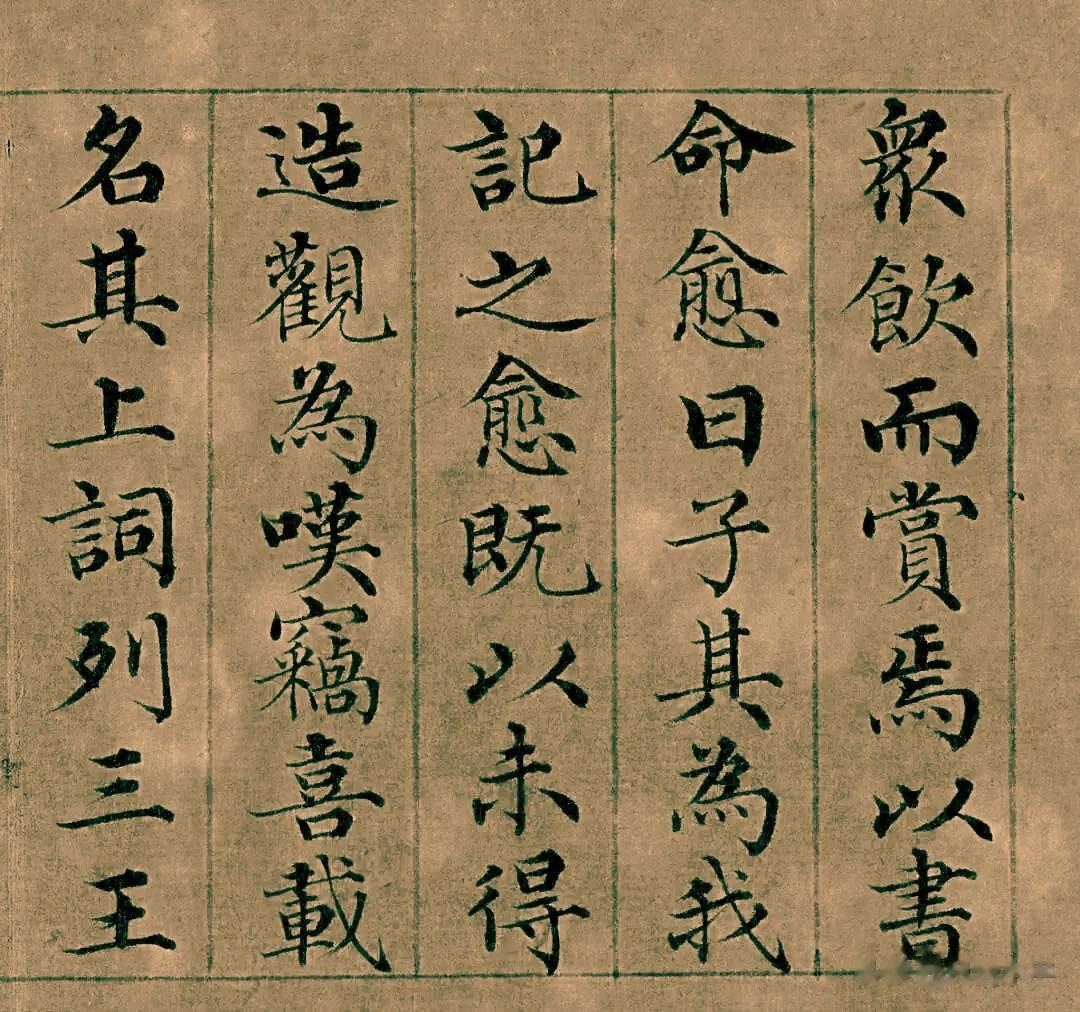 衆飲而賞焉以書
命愈曰子其為我
記之愈既以未得
造觀為嘆竊喜載
名其上詞列三王